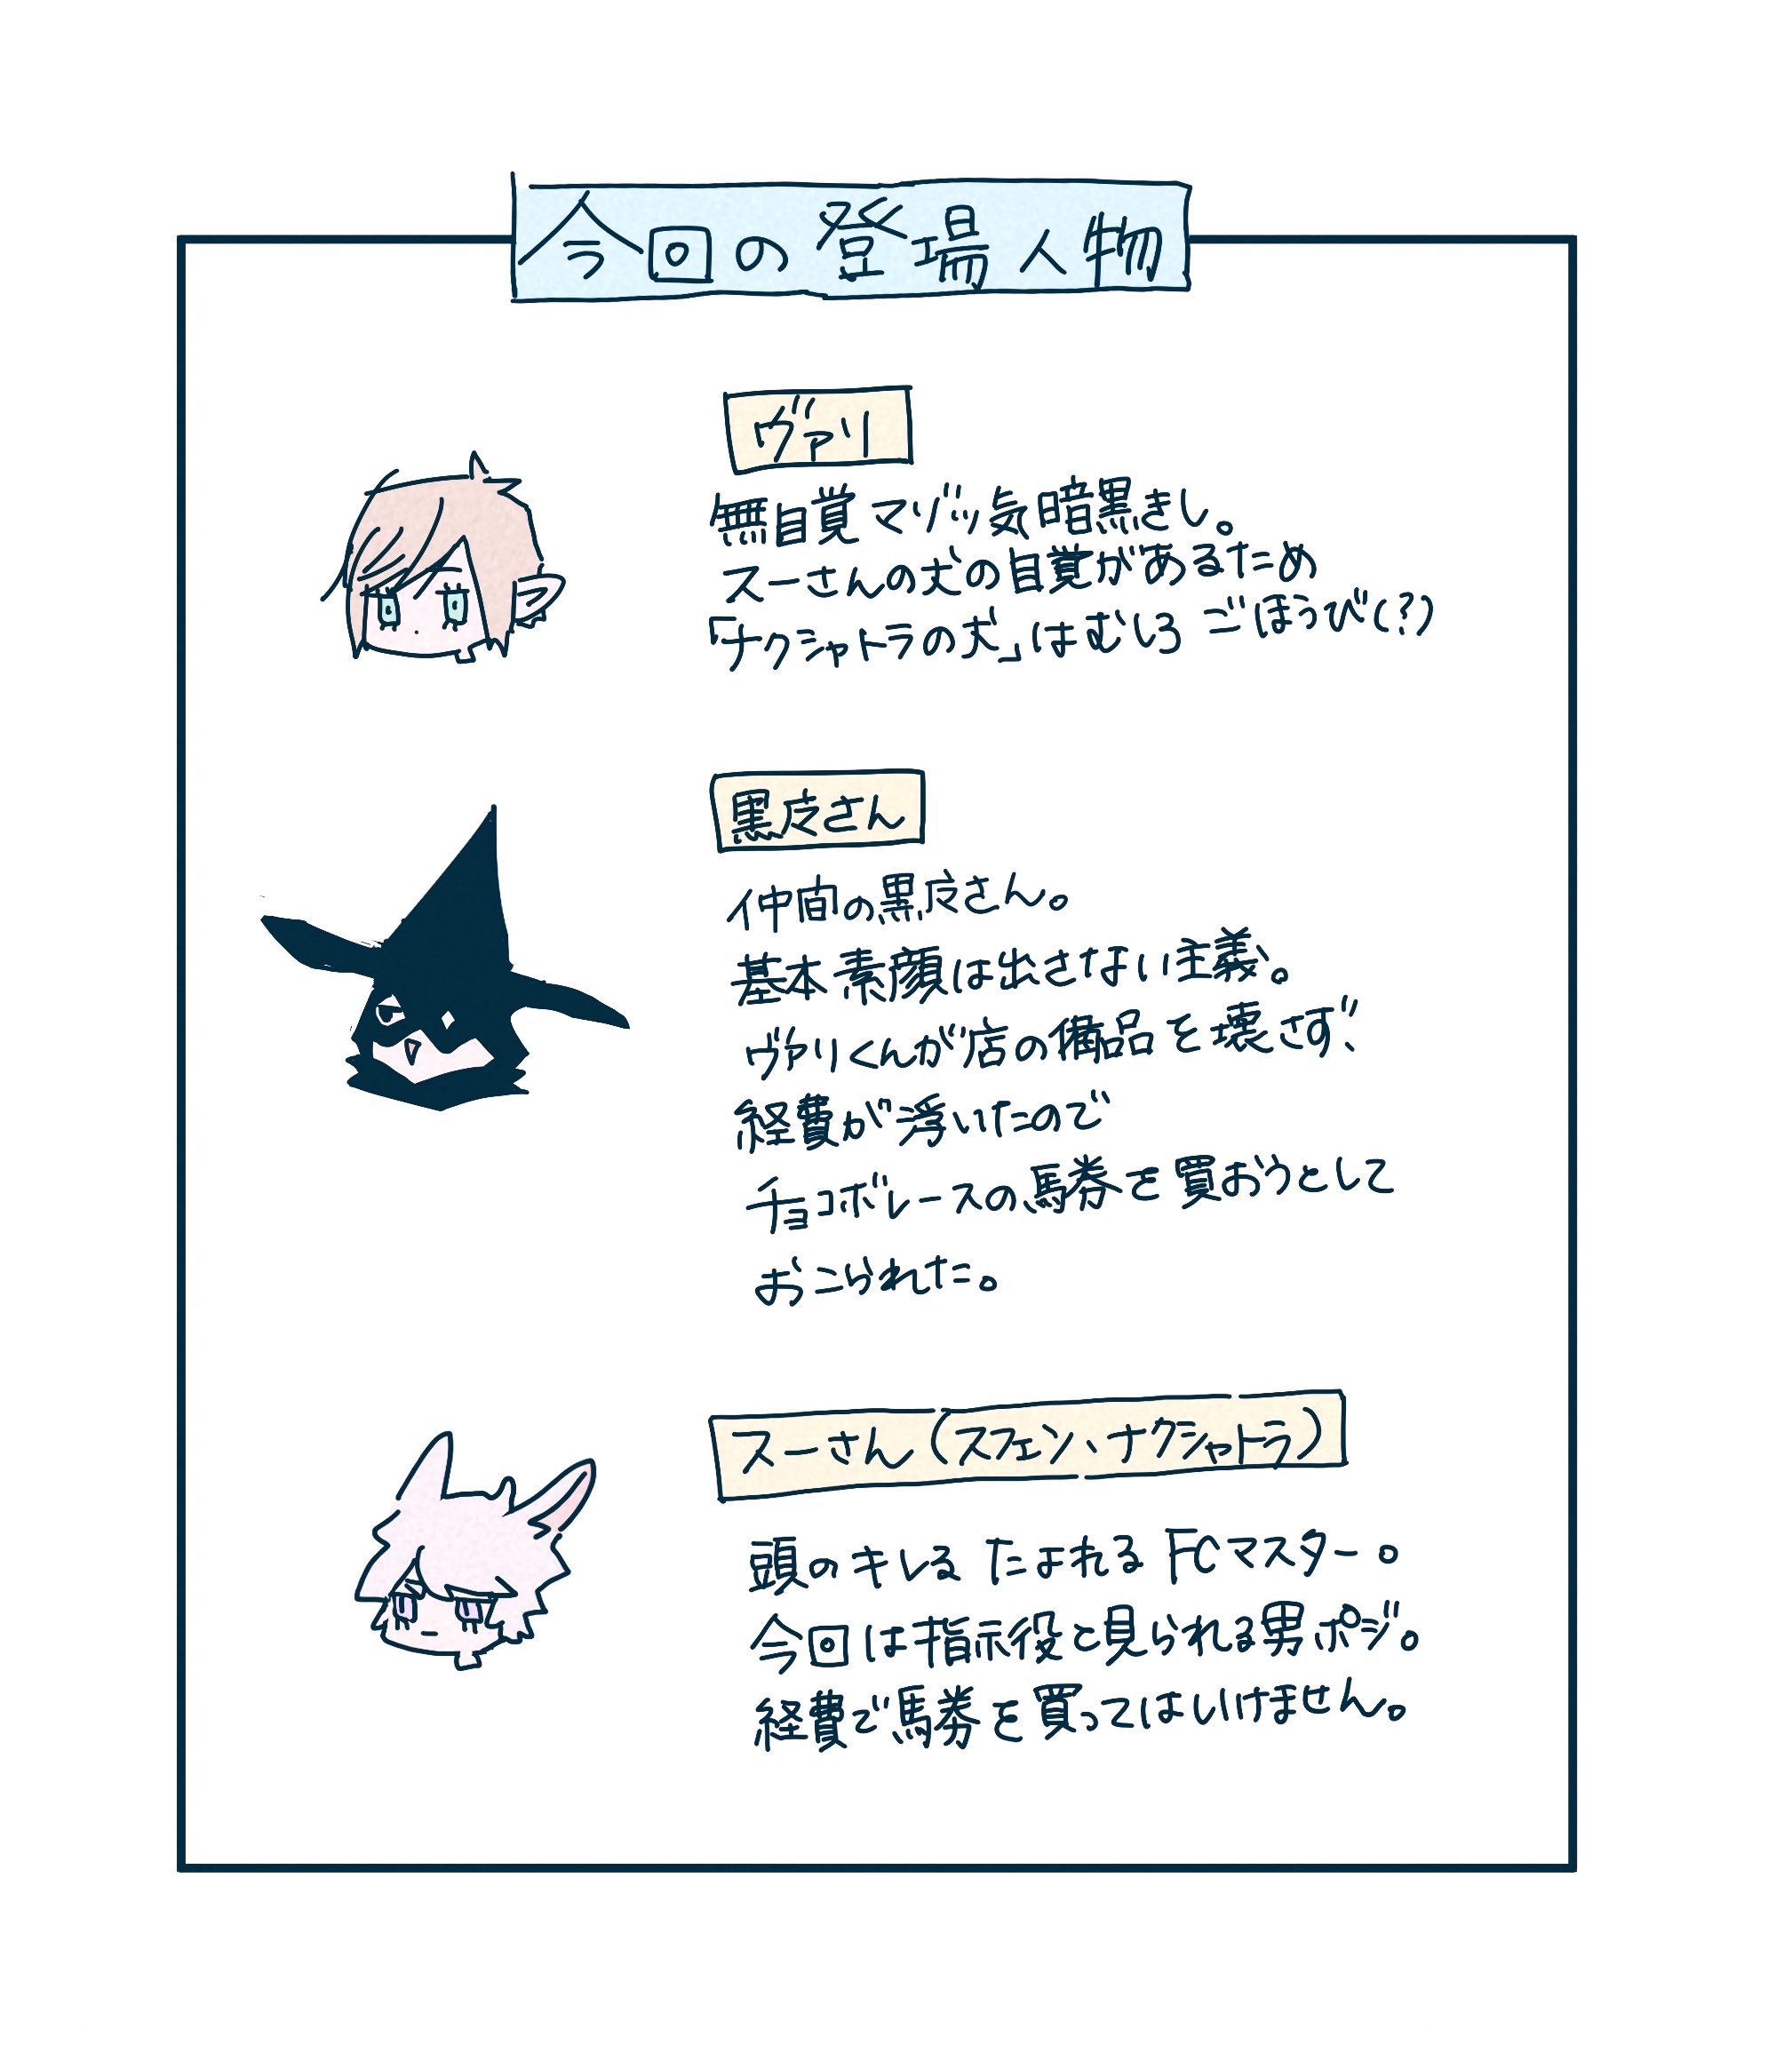 今回の登場人物
ヴァリ
無自覚マゾッ気暗黒きし。
スーさんの犬の自覚があるため
「ナクシャトラの犬」はむしろ ごほうび(?)
黒皮さん
仲間の黒皮さん。
基本素顔は出さない主義。
ヴァリくんが店の備品を壊さず、
経費が浮いたので
チョコボレースの馬券を買おうとして
おこられた。
スーさん(スフェン、ナクシャトラ)
頭のキレる たよれる FCマスター。
今回は指示役と見られる男ポジ。
経費で馬券を買ってはいけません。